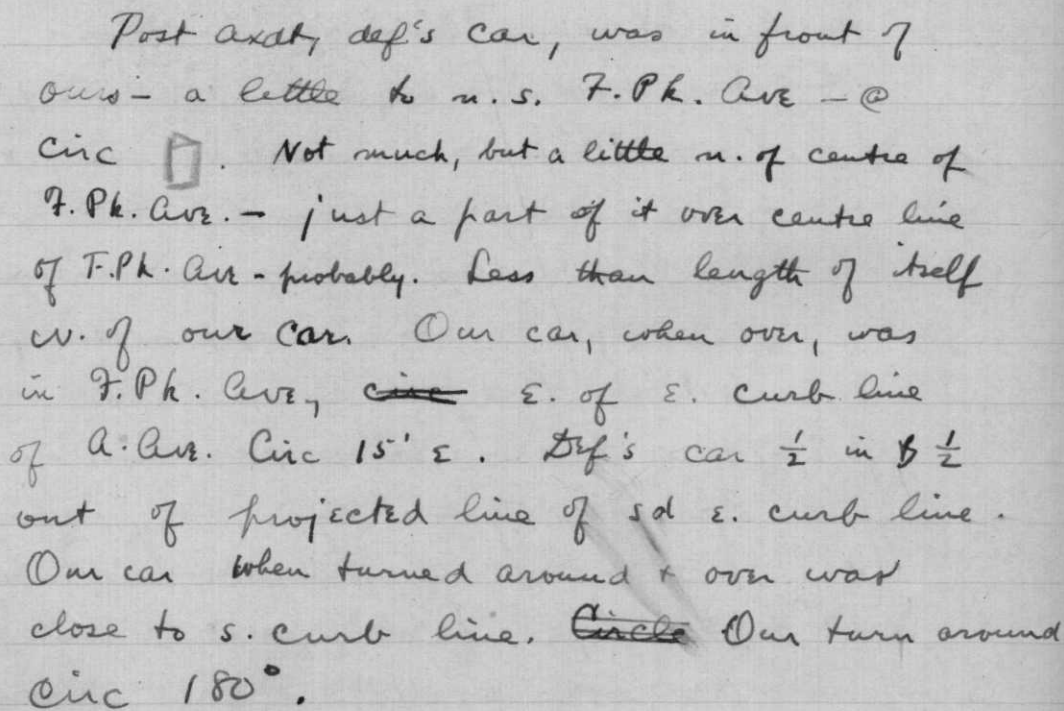 Post axdt, def's car, was in front of
ours - a little to n. s. F. Pk. Ave - @
circ . Not much, but a little n. of centre of
F. Pk. Ave. - just a part of it over centre line
of F. Pk. Ave - probably. Less than length of itself
w. of our car. Our car, when over, was
in F. Pk. Ave, circ E. of E. curb line
of A. Ave. Circ 15' E. Def's car ½ in & ½
out of projected line of sd E. curb line.
Our car when turned around + over was
close to s. curb line. Circle Our turn around
circ 180°.